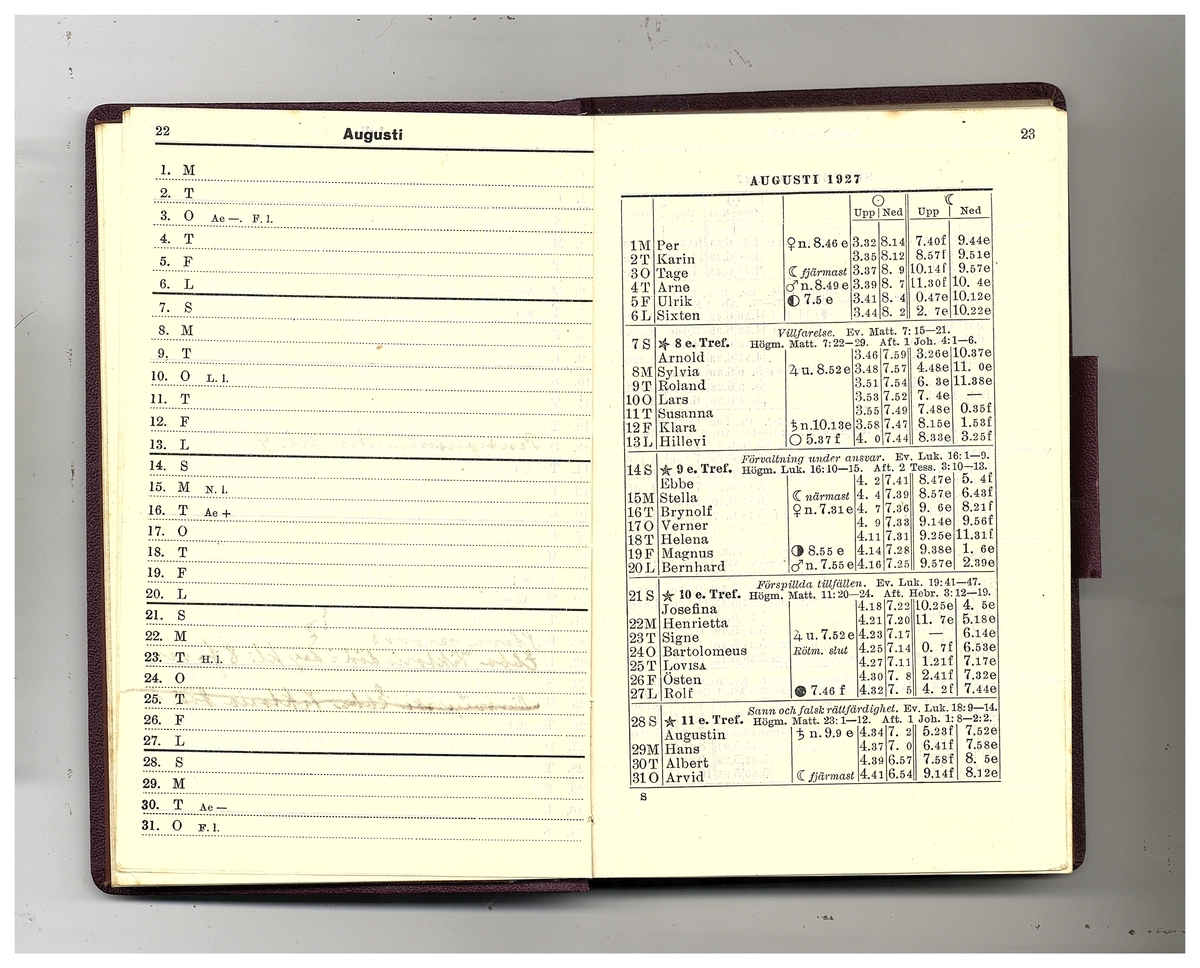 22 Augusti
1. M
2. T
3. O Ae —. F. l.
4. T
5. F
6. L
7. S
8. M
9. T
10. O L. l.
11. T
12. F
13. L
14. S
15. M N. l.
16. T Ae +
17. O
18. T
19. F
20. L
21. S
22. M
23. T H. l.
24. O
25. T
26. F
27. L
28. S
29. M
30. T Ae —
31. O F. l.
23
AUGUSTI 1927
☉ ☾
Upp Ned Upp Ned
1 M Per ♀ n. 8.46 e 3.32 8.14 7.40f 9.44e
2 T Karin 3.35 8.12 8.57f 9.51e
3 O Tage ☾ fjärmast 3.37 8. 9 10.14f 9.57e
4 T Arne ♂ n. 8.49 e 3.39 8. 7 11.30f 10. 4e
5 F Ulrik ◐ 7.5 e 3.41 8. 4 0.47e 10.12e
6 L Sixten 3.44 8. 2 2. 7e 10.22e
Villfarelse. Ev. Matt. 7: 15—21.
7 S ★ 8 e. Tref. Högm. Matt. 7:22—29. Aft. 1 Joh. 4:1—6.
Arnold 3.46 7.59 3.26e 10.37e
8 M Sylvia ♃ u. 8.52 e 3.48 7.57 4.48e 11. 0e
9 T Roland 3.51 7.54 6. 3e 11.38e
10 O Lars 3.53 7.52 7. 4e —
11 T Susanna 3.55 7.49 7.48e 0.35f
12 F Klara ♄ n. 10.13e 3.58 7.47 8.15e 1.53f
13 L Hillevi ○ 5.37 f 4. 0 7.44 8.33e 3.25f
Förvaltning under ansvar. Ev. Luk. 16: 1—9.
14 S ★ 9 e. Tref. Högm. Luk. 16: 10—15. Aft. 2 Tess. 3: 10—13.
Ebbe 4. 2 7.41 8.47e 5. 4f
15 M Stella ☾ närmast 4. 4 7.39 8.57e 6.43f
16 T Brynolf ♀ n. 7.31 e 4. 7 7.36 9. 6e 8.21f
17 O Verner 4. 9 7.33 9.14e 9.56f
18 T Helena 4.11 7.31 9.25e 11.31f
19 F Magnus ◑ 8.55 e 4.14 7.28 9.38e 1. 6e
20 L Bernhard ♂ n. 7.55 e 4.16 7.25 9.57e 2.39e
Förspillda tillfällen. Ev. Luk. 19: 41—47.
21 S ★ 10 e. Tref. Högm. Matt. 11: 20—24. Aft. Hebr. 3: 12—19.
Josefina 4.18 7.22 10.25e 4. 5e
22 M Henrietta 4.21 7.20 11. 7e 5.18e
23 T Signe ♃ u. 7.52 e 4.23 7.17 — 6.14e
24 O Bartolomeus Rötm. slut 4.25 7.14 0. 7f 6.53e
25 T LOVISA 4.27 7.11 1.21f 7.17e
26 F Östen 4.30 7. 8 2.41f 7.32e
27 L Rolf ● 7.46 f 4.32 7. 5 4. 2f 7.44e
Sann och falsk rättfärdighet. Ev. Luk. 18: 9—14.
28 S ★ 11 e. Tref. Högm. Matt. 23: 1—12. Aft. 1 Joh. 1: 8—2:2.
Augustin ♄ n. 9.9 e 4.34 7. 2 5.23f 7.52e
29 M Hans 4.37 7. 0 6.41f 7.58e
30 T Albert 4.39 6.57 7.58f 8. 5e
31 O Arvid ☾ fjärmast 4.41 6.54 9.14f 8.12e
S